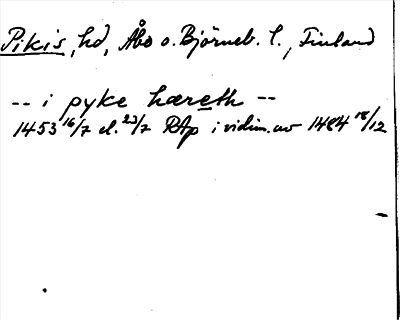 Pikis, hd, Åbo o. Björneb. l., Finland
-- i pyke hæreth --
1453 16/7 el. 23/7 RAp i vidim. av 1484 18/12